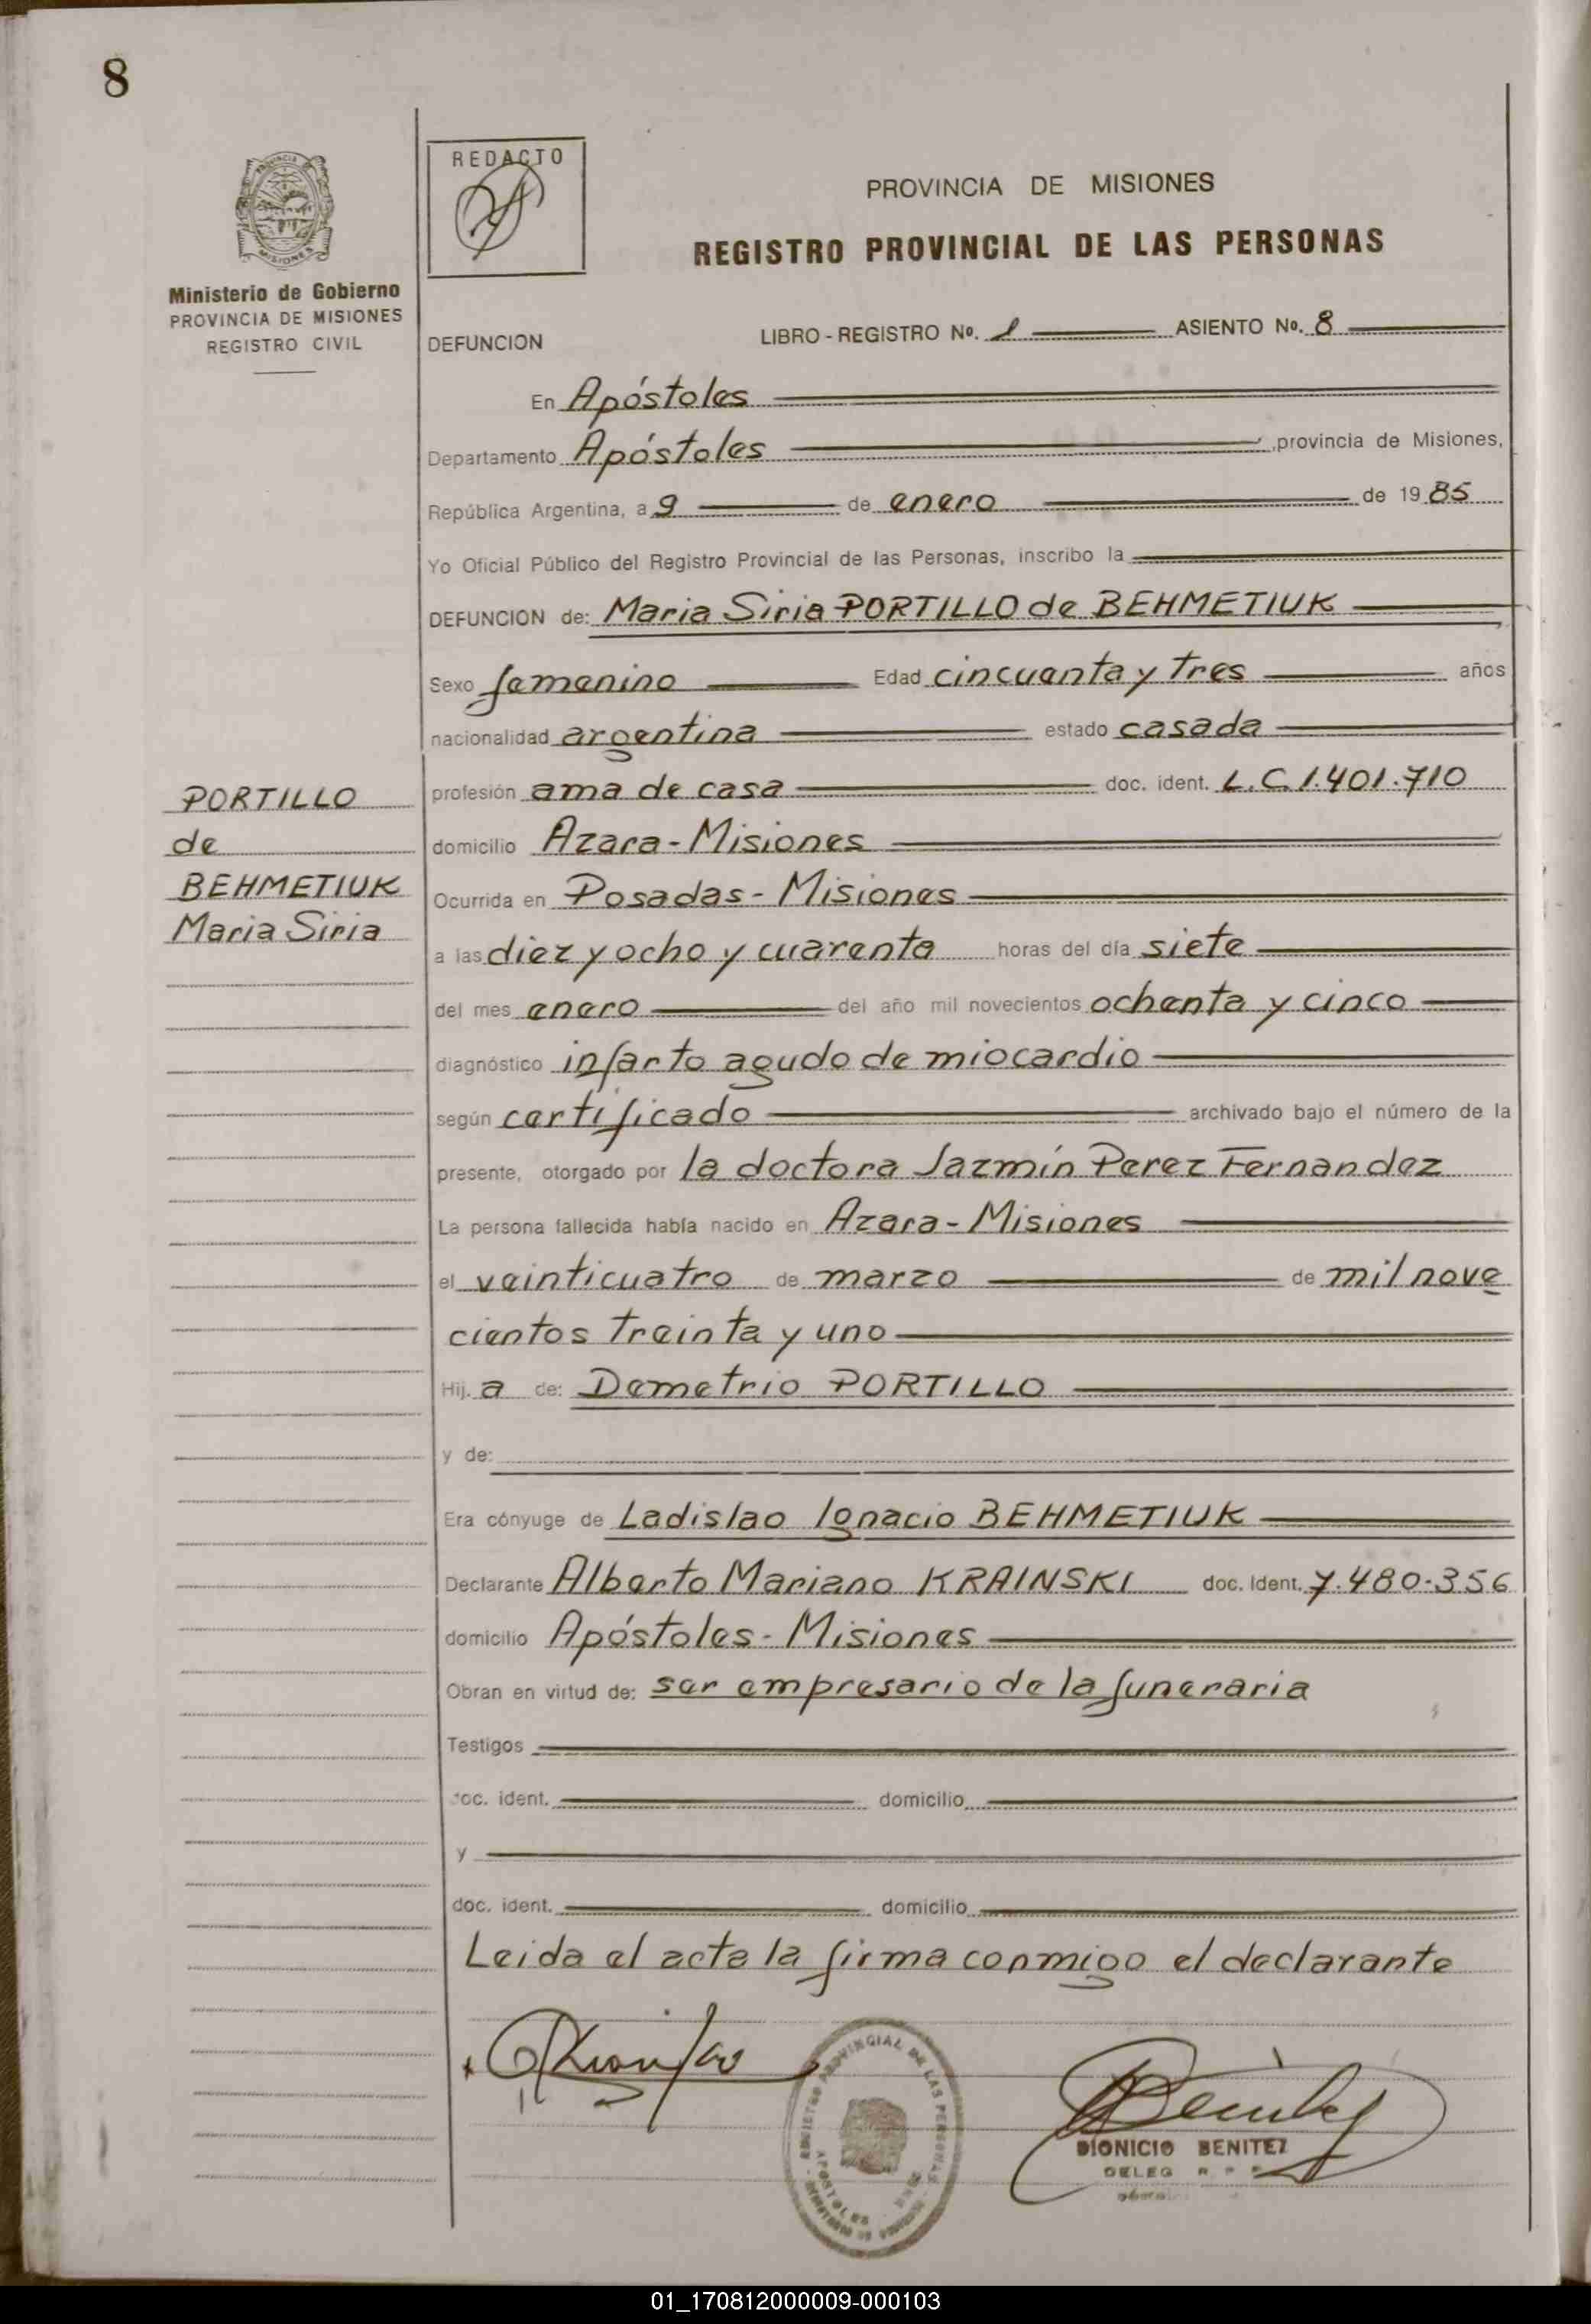 8
REDACTO
PROVINCIA DE MISIONES
REGISTRO PROVINCIAL DE LAS PERSONAS
Ministerio de Gobierno
PROVINCIA DE MISIONES
REGISTRO CIVIL
DEFUNCION LIBRO - REGISTRO Nº. 1 ASIENTO Nº. 8
En Apóstoles
Departamento Apóstoles, provincia de Misiones,
República Argentina, a 9 de enero de 1985
Yo Oficial Público del Registro Provincial de las Personas, inscribo la
DEFUNCION de: Maria Siria PORTILLO de BEHMETIUK
Sexo femenino Edad cincuenta y tres años
nacionalidad argentina estado casada
PORTILLO
de
BEHMETIUK
Maria Siria
profesión ama de casa doc. ident. L.C. 1.401.710
domicilio Azara - Misiones
Ocurrida en Posadas - Misiones
a las diez y ocho y cuarenta horas del día siete
del mes enero del año mil novecientos ochenta y cinco
diagnóstico infarto agudo de miocardio
según certificado archivado bajo el número de la
presente, otorgado por la doctora Jazmín Perez Fernandez
La persona fallecida había nacido en Azara - Misiones
el veinticuatro de marzo de mil nove
cientos treinta y uno
Hij. a de: Demetrio PORTILLO
y de:
Era cónyuge de Ladislao Ignacio BEHMETIUK
Declarante Alberto Mariano KRAINSKI doc. Ident. 7.480.356
domicilio Apóstoles - Misiones
Obran en virtud de: ser empresario de la funeraria
Testigos
doc. ident. domicilio
y
doc. ident. domicilio
Leida el acta la firma conmigo el declarante
REGISTRO PROVINCIAL DE LAS PERSONAS
APOSTOLES
DIONICIO BENITEZ
DELEG R. P. P.
01_170812000009-000103